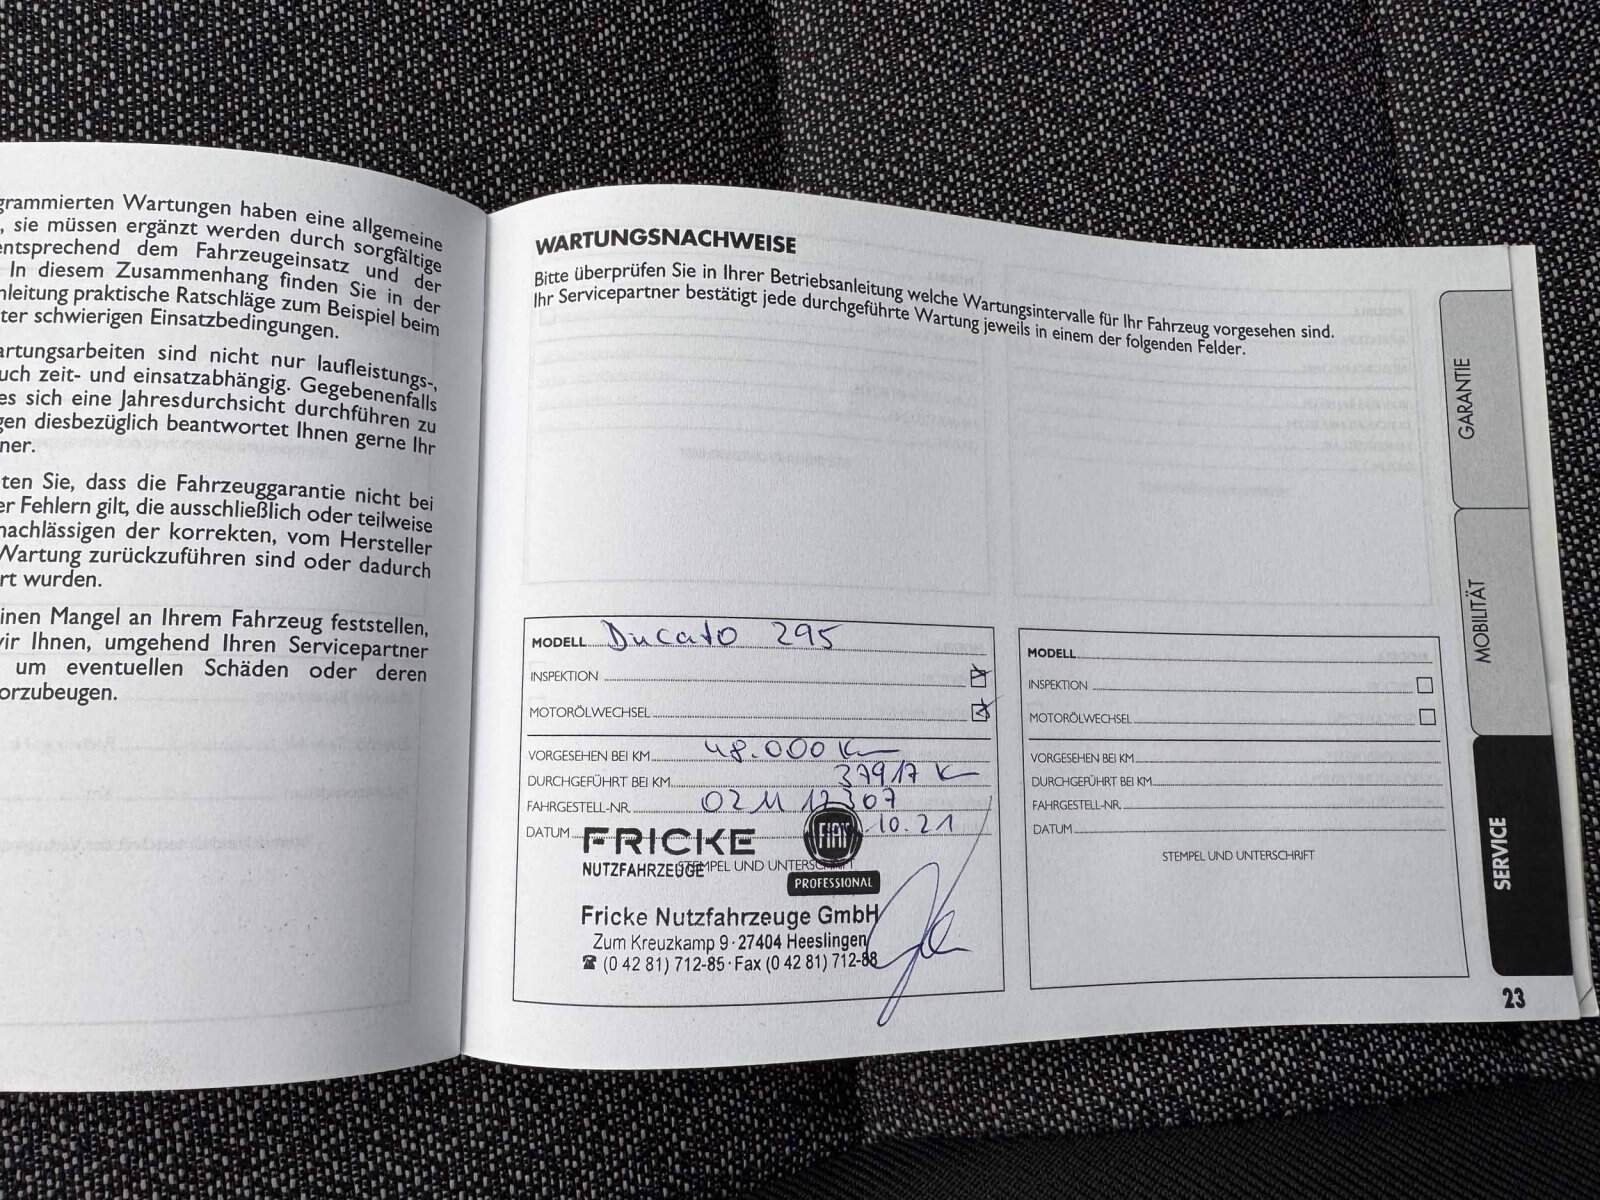 grammierten Wartungen haben eine allgemeine
, sie müssen ergänzt werden durch sorgfältige
entsprechend dem Fahrzeugeinsatz und der
In diesem Zusammenhang finden Sie in der
nleitung praktische Ratschläge zum Beispiel beim
ter schwierigen Einsatzbedingungen.
artungsarbeiten sind nicht nur laufleistungs-,
uch zeit- und einsatzabhängig. Gegebenenfalls
es sich eine Jahresdurchsicht durchführen zu
gen diesbezüglich beantwortet Ihnen gerne Ihr
ner.
ten Sie, dass die Fahrzeuggarantie nicht bei
er Fehlern gilt, die ausschließlich oder teilweise
nachlässigen der korrekten, vom Hersteller
Wartung zurückzuführen sind oder dadurch
rt wurden.
inen Mangel an Ihrem Fahrzeug feststellen,
vir Ihnen, umgehend Ihren Servicepartner
um eventuellen Schäden oder deren
orzubeugen.
WARTUNGSNACHWEISE
Bitte überprüfen Sie in Ihrer Betriebsanleitung welche Wartungsintervalle für Ihr Fahrzeug vorgesehen sind.
Ihr Servicepartner bestätigt jede durchgeführte Wartung jeweils in einem der folgenden Felder.
MODELL Ducato 295
INSPEKTION
MOTORÖLWECHSEL
VORGESEHEN BEI KM 48.000 Km
DURCHGEFÜHRT BEI KM 37917 K
FAHRGESTELL-NR. 02U 12307
DATUM 10.21
FRICKE FIAT
NUTZFAHRZEUGE STEMPEL UND UNTERSCHRIFT
PROFESSIONAL
Fricke Nutzfahrzeuge GmbH
Zum Kreuzkamp 9 · 27404 Heeslingen
☎ (0 42 81) 712-85 · Fax (0 42 81) 712-88
MODELL
INSPEKTION
MOTORÖLWECHSEL
VORGESEHEN BEI KM
DURCHGEFÜHRT BEI KM
FAHRGESTELL-NR.
DATUM
STEMPEL UND UNTERSCHRIFT
GARANTIE
MOBILITÄT
SERVICE
23